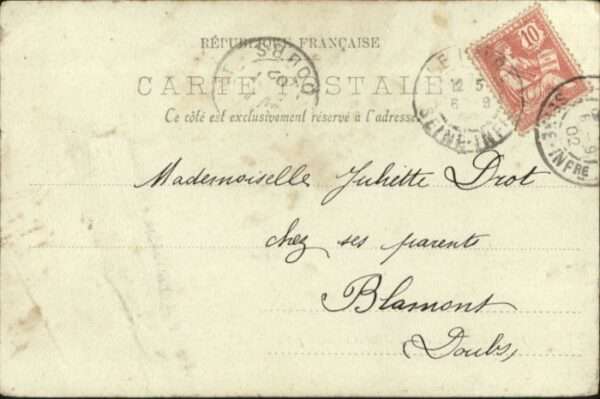 RÉPUBLIQUE FRANÇAISE
CARTE POSTALE
Ce côté est exclusivement réservé à l'adresse
10
DOUBS
02
12 5
6 8
SEINE-INFRE
02
Mademoiselle Juliette Drot
chez ses parents
Blamont
Doubs